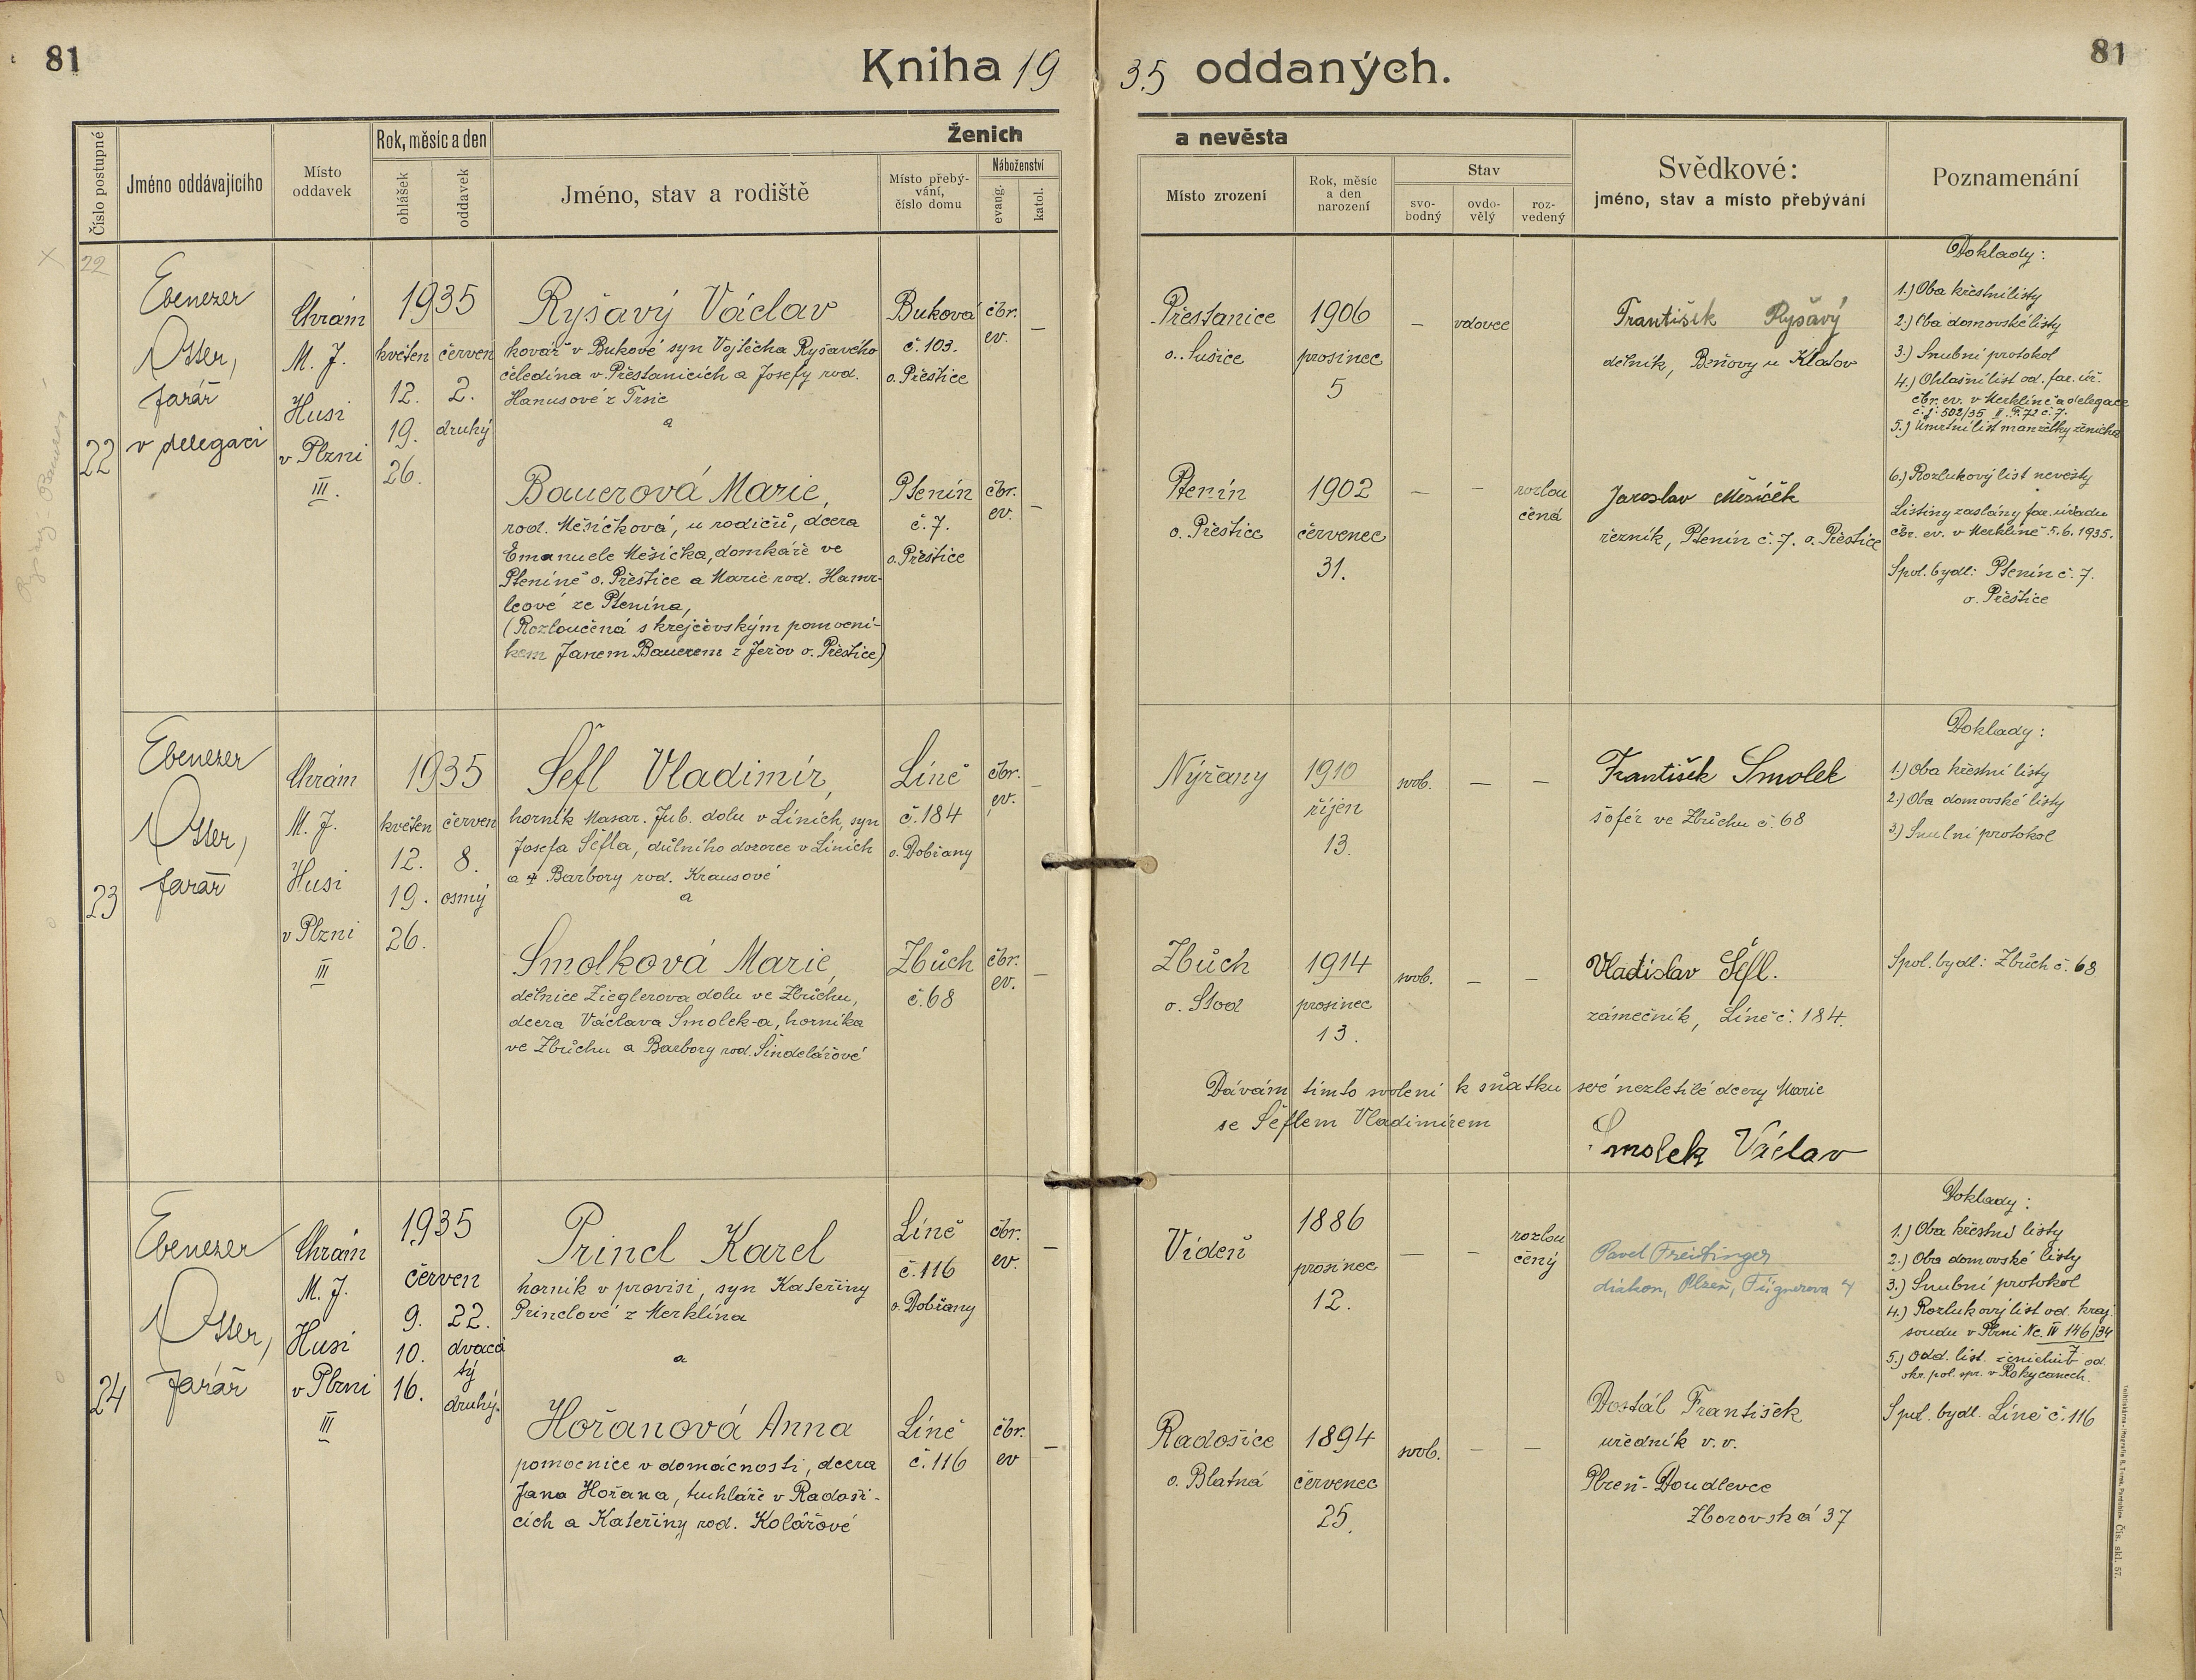 81
Kniha 19 35 oddaných.
81
Číslo postupné
Jméno oddávajícího
Místo
oddavek
Rok, měsíc a den
ohlášek
oddavek
Ženich
a nevěsta
Jméno, stav a rodiště
Místo přebý-
vání,
číslo domu
Náboženství
evang.
katol.
Místo zrození
Rok, měsíc
a den
narození
Stav
svo-
bodný
ovdo-
vělý
roz-
vedený
Svědkové:
jméno, stav a místo přebývání
Poznamenání
22
22
Ebenezer
Otter,
farář
v delegaci
Chrám
M. J.
Husi
v Plzni
III.
1935
květen
12.
19.
26.
červen
2.
druhý
Ryšavý Václav
kovář v Bukové syn Vojtěcha Ryšavého
čeledína v Přestanicích a Josefy rod.
Hanusové z Trsic
a
Buková
č. 103.
o. Přeštice
čbr.
ev.
–
Přestanice
o. Sušice
1906
prosinec
5
–
vdovec
František Ryšavý
dělník, Beňovy u Klatov
Doklady:
1.) Oba křestní listy
2.) Oba domovské listy
3.) Snubní protokol
4.) Ohlašní list od. far. úř.
čbr. ev. v Merklíně a delegace
č. j. 502/35 II. F. 72 č. 7.
5.) Úmrtní list manželky ženicha
Bauerová Marie,
rod. Měsíčková, u rodičů, dcera
Emanuele Mešíčka, domkáře ve
Pteníně o. Přeštice a Marie rod. Hamr-
leové ze Ptenína,
(Rozloučená s krejčovským pomocní-
kem Janem Bauerem z Jeřov o. Přeštice)
Ptenín
č. 7.
o. Přeštice
čbr.
ev.
–
Ptenín
o. Přeštice
1902
červenec
31.
–
–
rozlou
čená
Jaroslav Měsíček
řezník, Ptenín č. 7. o. Přeštice
6.) Rozlukový list nevěsty
Listiny zaslány far. úřadu
čbr. ev. v Merklíně 5. 6. 1935.
Spol. bydl: Ptenín č. 7.
o. Přeštice
23
Ebenezer
Otter,
farář
Chrám
M. J.
Husi
v Plzni
III
1935
květen
12.
19.
26.
červen
8.
osmý
Šefl Vladimír,
horník Masar. Jub. dolu v Líních, syn
Josefa Šéfla, důlního dozorce v Líních
a Barbory rod. Krausové
a
Líně
č. 184
o. Dobřany
čbr.
ev.
–
Nýřany
1910
říjen
13.
svob.
–
–
František Smolek
šofér ve Zbůchu č. 68
Doklady:
1.) Oba křestní listy
2.) Oba domovské listy
3.) Snubní protokol
Smolková Marie,
dělnice Zieglerova dolu ve Zbůchu,
dcera Václava Smolek-a, horníka
ve Zbůchu a Barbory rod. Šindelářové
Zbůch
č. 68
čbr.
ev.
–
Zbůch
o. Stod
1914
prosinec
13.
svob.
–
–
Vladislav Šéfl.
zámečník, Líně č. 184.
Spol. bydl: Zbůch č. 68
Dávám tímto svolení k sňatku své nezletilé dcery Marie
se Šéflem Vladimírem
Smolek Václav
24
Ebenezer
Otter,
farář
Chrám
M. J.
Husi
v Plzni
III
1935
červen
9.
10.
16.
22.
dvacá
tý
druhý.
Princl Karel
horník v provisi, syn Kateřiny
Princlové z Merklína
a
Líně
č. 116
o. Dobřany
čbr.
ev.
–
Vídeň
1886
prosinec
12.
–
–
rozlou
čený
Pavel Freitinger
diákon, Plzeň, Fügnerova 4
Doklady:
1.) Oba křestní listy
2.) Oba domovské listy
3.) Snubní protokol
4.) Rozlukový list od. kraj.
soudu v Plzni Nc. IV 146/34
5.) Odd. list. od
okr. pol. spr. v Rokycanech.
Hořanová Anna
pomocnice v domácnosti, dcera
Jana Hořana, truhláře v Radoši-
cích a Kateřiny rod. Kolářové
Líně
č. 116
čbr.
ev
–
Radošice
o. Blatná
1894
červenec
25.
svob.
–
–
Dostál František
úředník v. v.
Plzeň-Doudlevce
Zborovská 37
Spol. bydl. Líně č. 116
Čís. skl. 57.